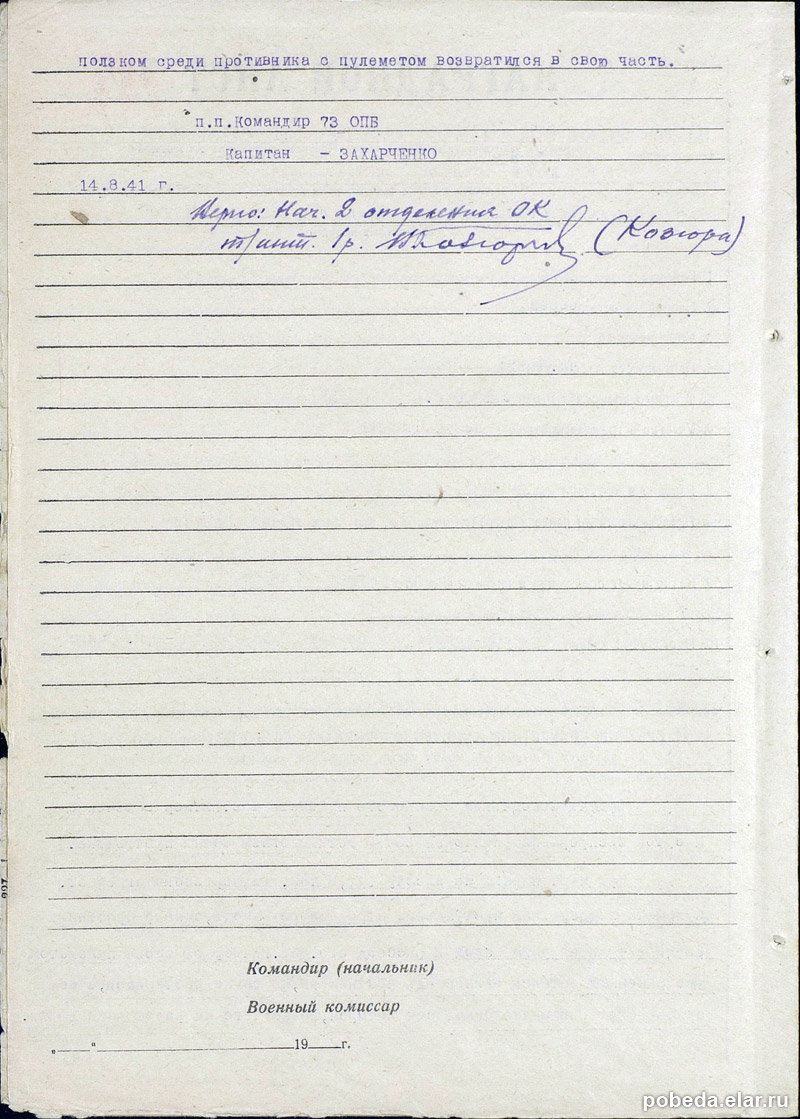 ползком среди противника с пулеметом возвратился в свою часть.
п.п.Командир 73 ОПБ
Капитан - ЗАХАРЧЕНКО
14.8.41 г.
Верно: Нач. 2 отделения ОК
т/инт. 1 р. (Козюра)
Командир (начальник)
Военный комиссар
„___“ ___ 19___г.
pobeda.elar.ru